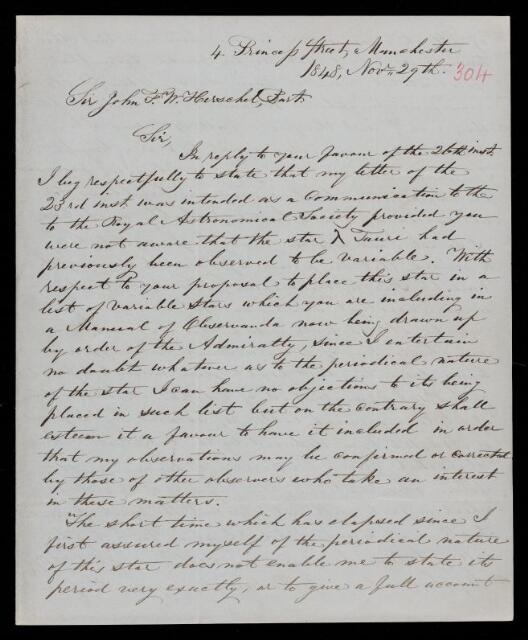 4 Princess Street, Manchester
1848, Novr. 29th. 304
Sir John F. W. Herschel, Bart.
Sir,
In reply to your favour of the 26th inst.
I beg respectfully to state that my letter of the
23rd inst. was intended as a Communication to the
to the Royal Astronomical Society provided you
were not aware that the star λ Tauri had
previously been observed to be variable. With
respect to your proposal to place this star in a
list of variable stars which you are including in
a Manual of Observanda now being drawn up
by order of the Admiralty, since I entertain
no doubt whatever as to the periodical nature
of the star I can have no objections to its being
placed in such list but on the contrary shall
esteem it a favour to have it included in order
that my observations may be confirmed or corrected
by those of other observers who take an interest
in these matters.
The short time which has elapsed since I
first assured myself of the periodical nature
of this star does not enable me to state its
period very exactly, or to give a full account